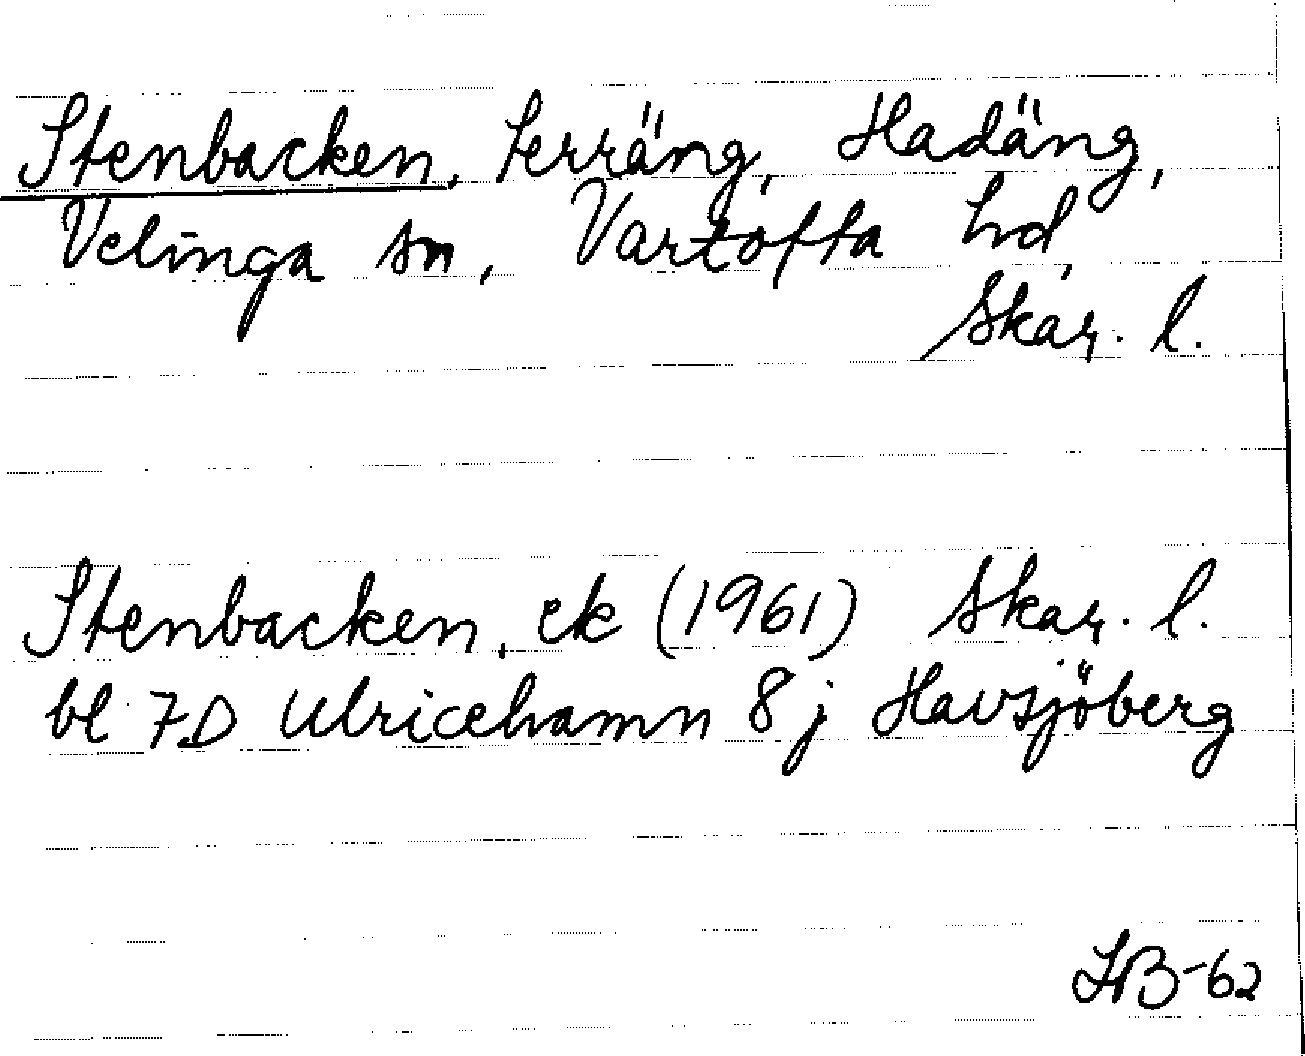 Stenbacken, terräng, Hadäng,
Velinga sn, Vartofta hd,
Skar. l.
Stenbacken, ek (1961) Skar. l.
bl 7D Ulricehamn 8 j Havsjöberg
HB-62